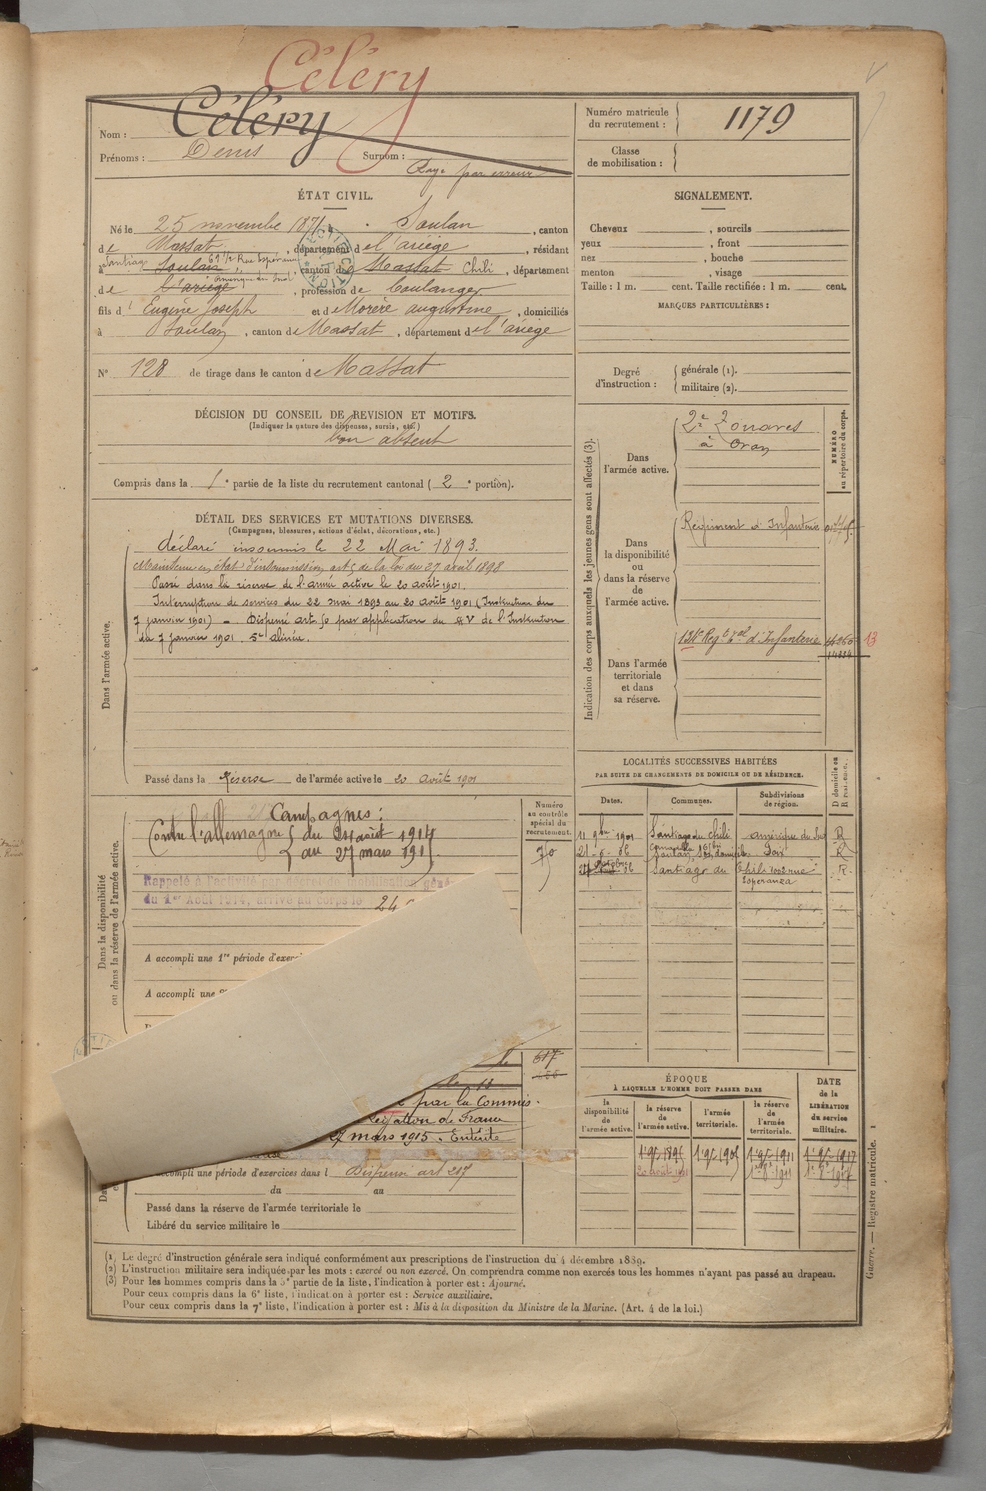 Céléry
Nom : Céléry
Prénoms : Denis Surnom :
Rayé par erreur
Numéro matricule du recrutement : 1179
Classe de mobilisation :
ÉTAT CIVIL.
Né le 25 novembre 1871, à Soulan, canton
de Massat, département de l'ariège, résidant
Santiago 69 1/2 Rue Esperanza
à Soulan, canton de Massat Chili, département
Amérique du Sud
de l'ariège, profession de boulanger
fils d' Eugène Joseph et de Morère augustine, domiciliés
à Soulan, canton de Massat, département de l'ariège
N° 128 de tirage dans le canton de Massat
SIGNALEMENT.
Cheveux , sourcils
yeux , front
nez , bouche
menton , visage
Taille : 1 m. cent. Taille rectifiée : 1 m. cent.
MARQUES PARTICULIÈRES :
Degré d'instruction : générale (1).
militaire (2).
DÉCISION DU CONSEIL DE REVISION ET MOTIFS.
(Indiquer la nature des dispenses, sursis, etc.)
bon absent
Compris dans la 1e partie de la liste du recrutement cantonal ( 2e portion).
DÉTAIL DES SERVICES ET MUTATIONS DIVERSES.
(Campagnes, blessures, actions d'éclat, décorations, etc.)
Dans l'armée active.
déclaré insoumis le 22 Mai 1893.
Maintenu en état d'insoumission, art 5 de la loi du 27 avril 1898
Passé dans la réserve de l'armée active le 20 août 1901.
Interruption de services du 22 mai 1893 au 20 août 1901 (Instruction du
7 janvier 1901) – Dispensé art. 50 par application du § V de l'Instruction
du 7 janvier 1901. 5e alinéa.
Passé dans la réserve de l'armée active le 20 août 1901
Indication des corps auxquels les jeunes gens sont affectés (3).
NUMÉRO au répertoire du corps.
Dans l'armée active.
2e Zouaves
à Oran
Dans la disponibilité ou dans la réserve de l'armée active.
Régiment d'Infanterie
Dans l'armée territoriale et dans sa réserve.
Regt tal d'Infanterie
13
Dans la disponibilité ou dans la réserve de l'armée active.
Numéro au contrôle spécial du recrutement.
70
Campagnes :
Contre l'allemagne du août 1914
au 27 mars 1915
Rappelé à l'activité
du 1er Août 1914, arrivé au corps le 24
A accompli une 1re période d'exerc
A accompli une
617
par la Commis-
de France
27 mars 1915. Entérite
ompli une période d'exercices dans l Dispensé art 217
du au
Passé dans la réserve de l'armée territoriale le
Libéré du service militaire le
LOCALITÉS SUCCESSIVES HABITÉES
PAR SUITE DE CHANGEMENTS DE DOMICILE OU DE RÉSIDENCE.
Dates. Communes. Subdivisions de région. D domicile ou R résidence.
11 9bre 1901 Santiago du chili amérique du Sud R
Soulan Foix R
Santiago du Chili 1002 rue R
Esperanza
ÉPOQUE
À LAQUELLE L'HOMME DOIT PASSER DANS
DATE de la LIBÉRATION du service militaire.
la disponibilité de l'armée active. la réserve de l'armée active. l'armée territoriale. la réserve de l'armée territoriale.
20 août 1901
(1) Le degré d'instruction générale sera indiqué conformément aux prescriptions de l'instruction du 4 décembre 1889.
(2) L'instruction militaire sera indiquée par les mots : exercé ou non exercé. On comprendra comme non exercés tous les hommes n'ayant pas passé au drapeau.
(3) Pour les hommes compris dans la 5e partie de la liste, l'indication à porter est : Ajourné.
Pour ceux compris dans la 6e liste, l'indication à porter est : Service auxiliaire.
Pour ceux compris dans la 7e liste, l'indication à porter est : Mis à la disposition du Ministre de la Marine. (Art. 4 de la loi.)
Guerre. — Registre matricule. 1